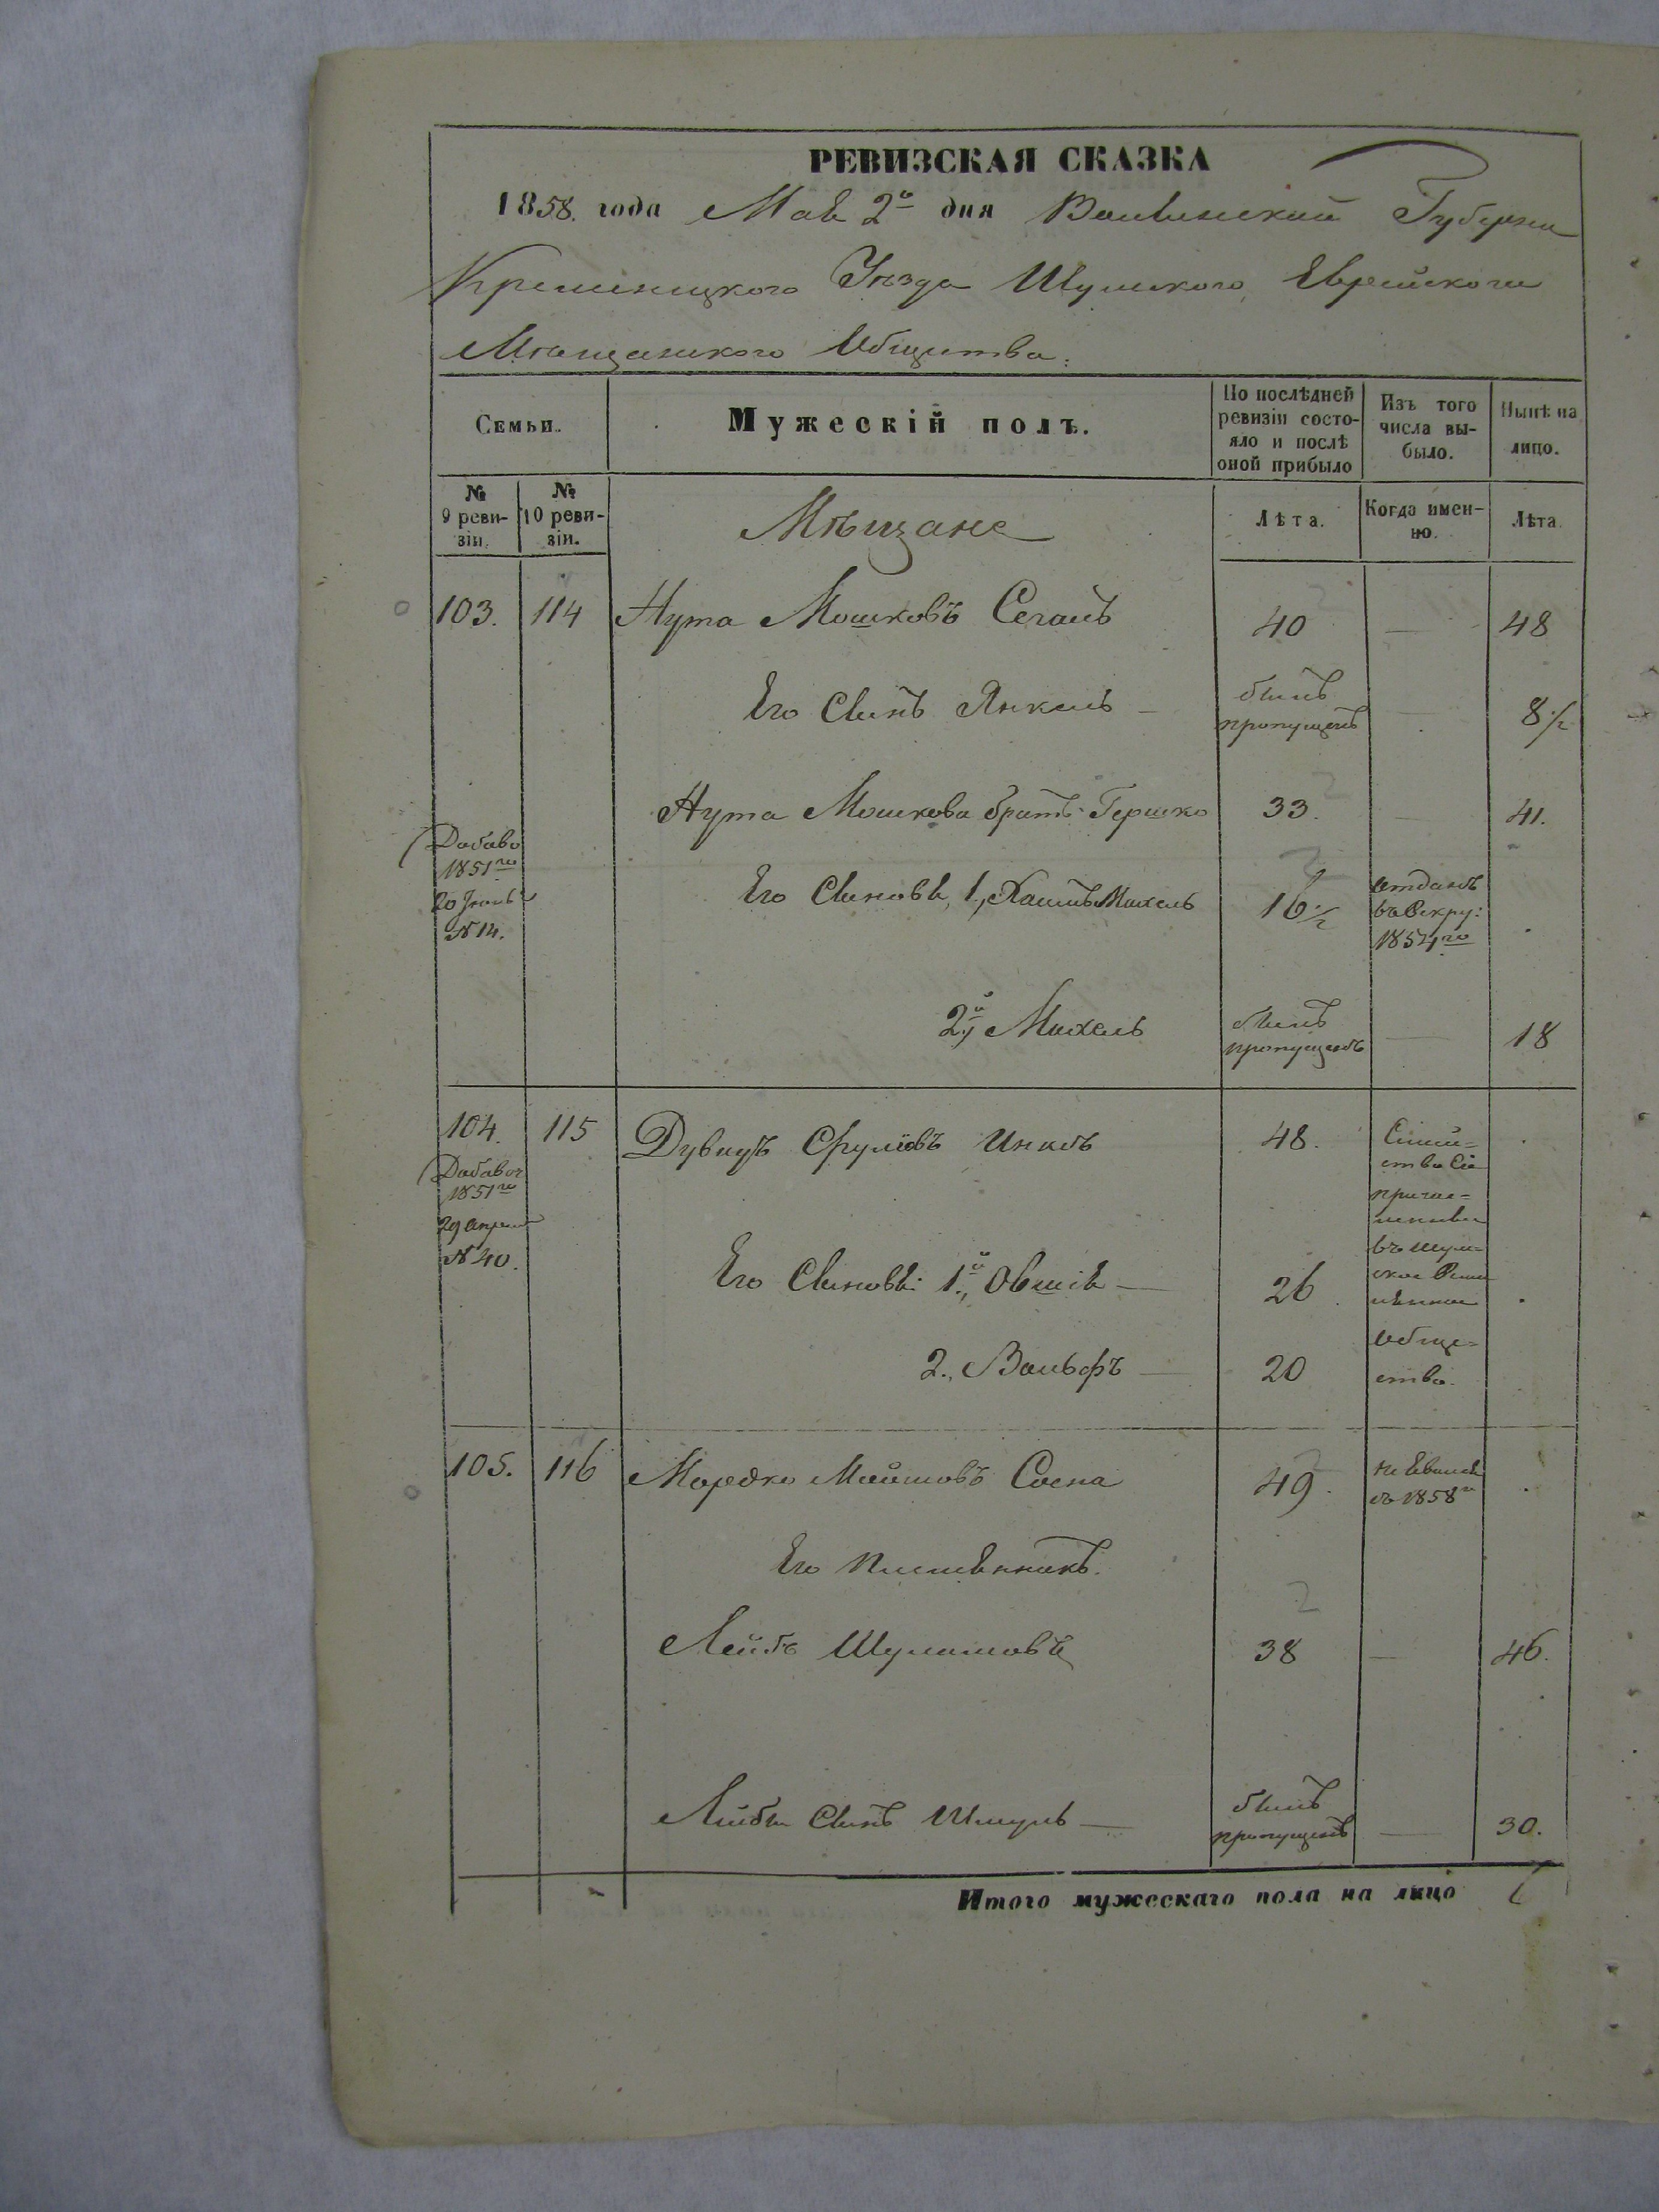 РЕВИЗСКАЯ СКАЗКА
1858. года Мая 2го дня Волынской Губерни
Кременецкого Уѣзда Шумского Еврейского
Мѣщанского Общества.
Семьи.
Мужескій полъ.
По послѣдней ревизіи состо-
яло и послѣ
оной прибыло
Изъ того
числа вы-
было.
Нынѣ на
лицо.
№
9 реви-
зіи.
№
10 реви-
зіи.
Мѣщане
Лѣта.
Когда имен-
но.
Лѣта.
103. 114 Нута Мошковъ Сегалъ 40 — 48
Его Сынъ Янкель — былъ
пропущенъ — 8½
Нута Мошкова братъ Гершко 33. — 41.
Добаво
1851го
20 Іюнь
№ 14.
Его Сыновья, 1, Хаимъ Михель 16½
отданъ
въ Рекру:
1854го
2й Михель былъ
пропущенъ — 18
104. 115 Дувидъ Сруліовъ 48.
Добавоч
1851го
29 Апрель
№ 40.
Семей=
ство Сіе
причис=
въ Шум=
ское
Обще=
ство.
Его Сыновья: 1й, Овшія — 26
2., Вольфъ — 20
105. 116 Мордко 49.
не Явился
съ 1858го
Его Племянникъ.
Лейба 38 — 46.
Лейбы Сынъ Шмуль — былъ
пропущенъ — 30.
Итого мужескаго пола на лицо